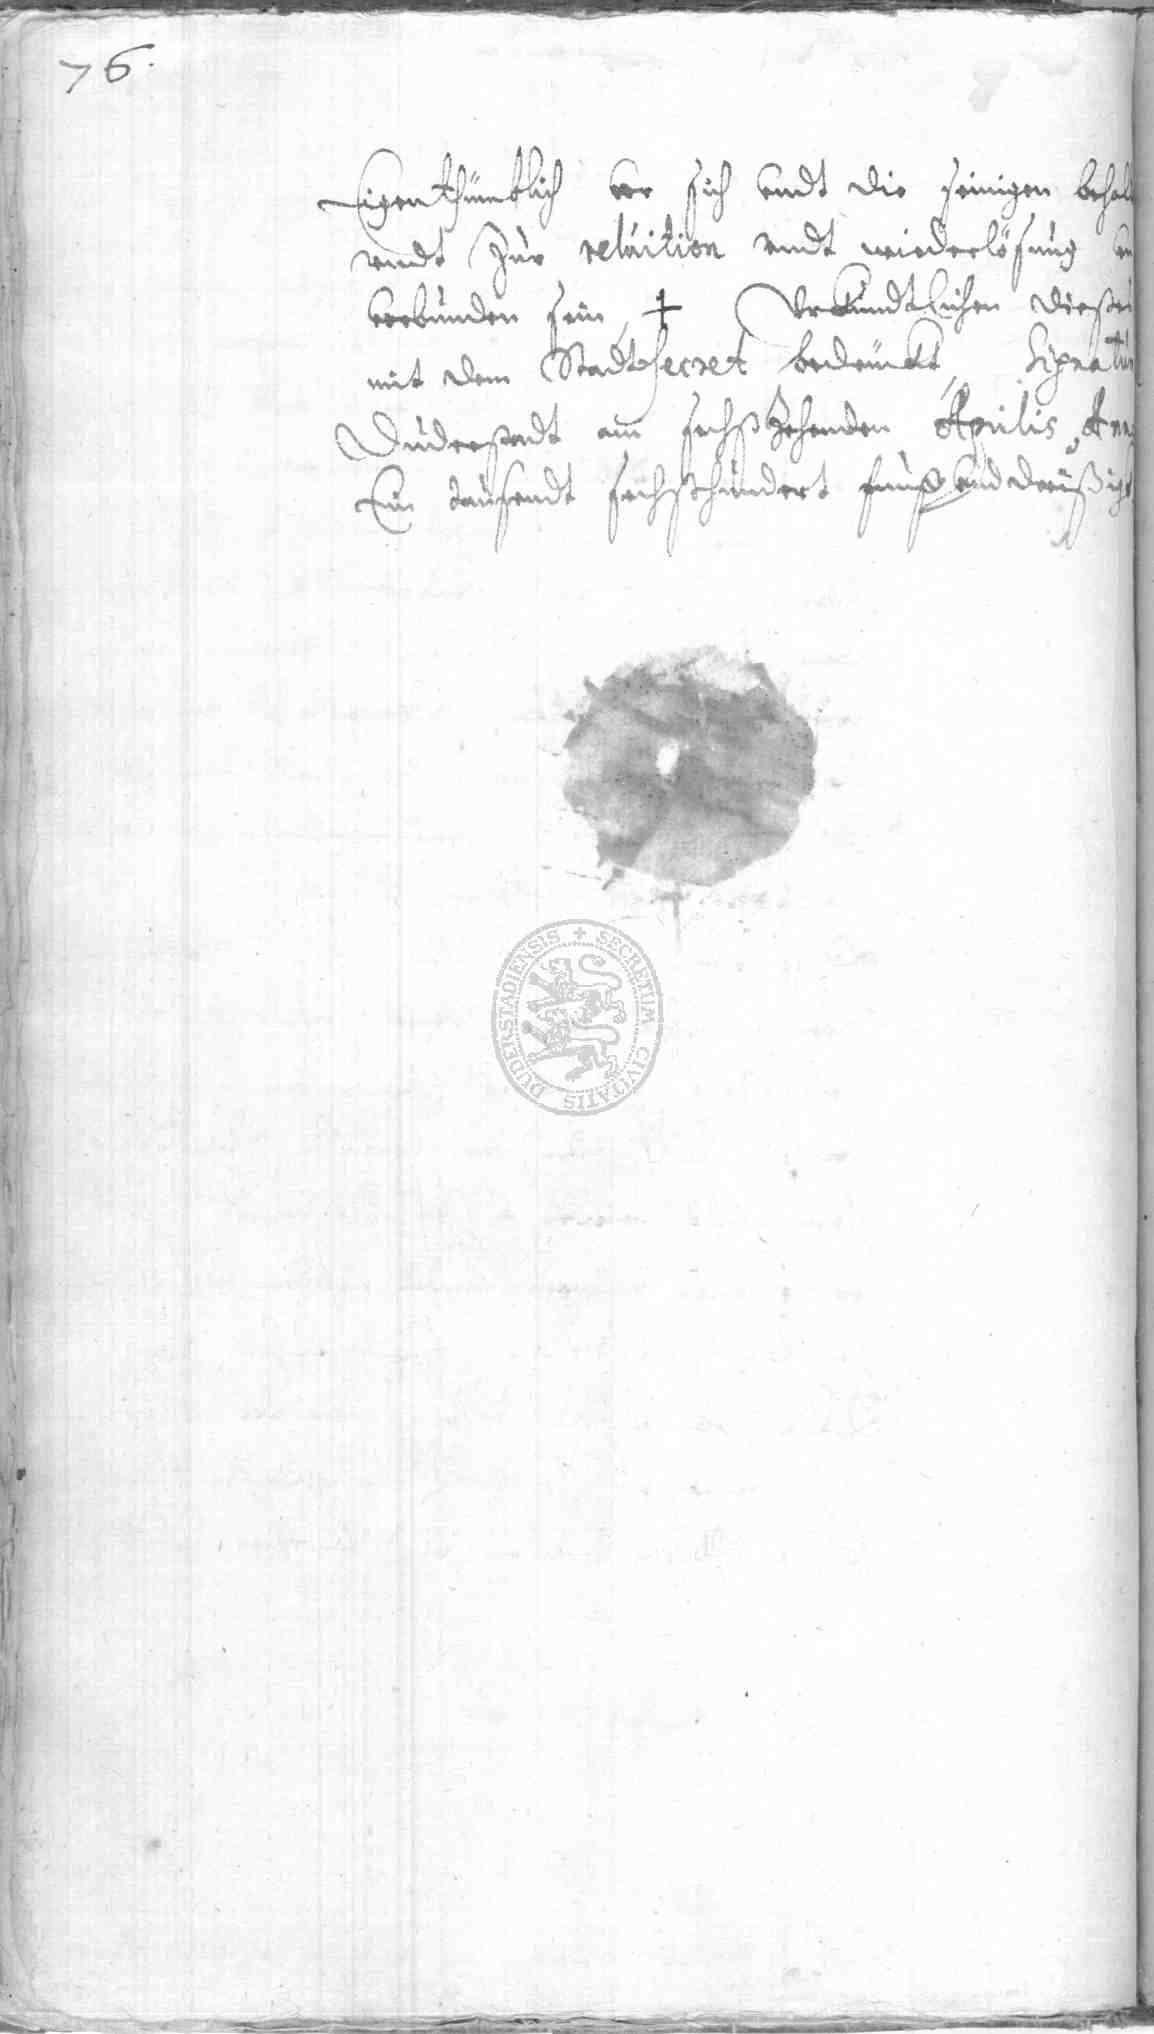 76.
Eigenthümblich vor sich undt die seinigen behal
undt Zur reluition undt wiederlösung
verbunden sein, Urkundtlichen dieses
mit dem Stadtsecret bedruckt, Signatum
Duderstadt am sechßzehenden Aprilis, Anno
Ein tausendt sechßhundert fünff und dreißigk
SECRETUM CIVITATIS DUDERSTADIENSIS